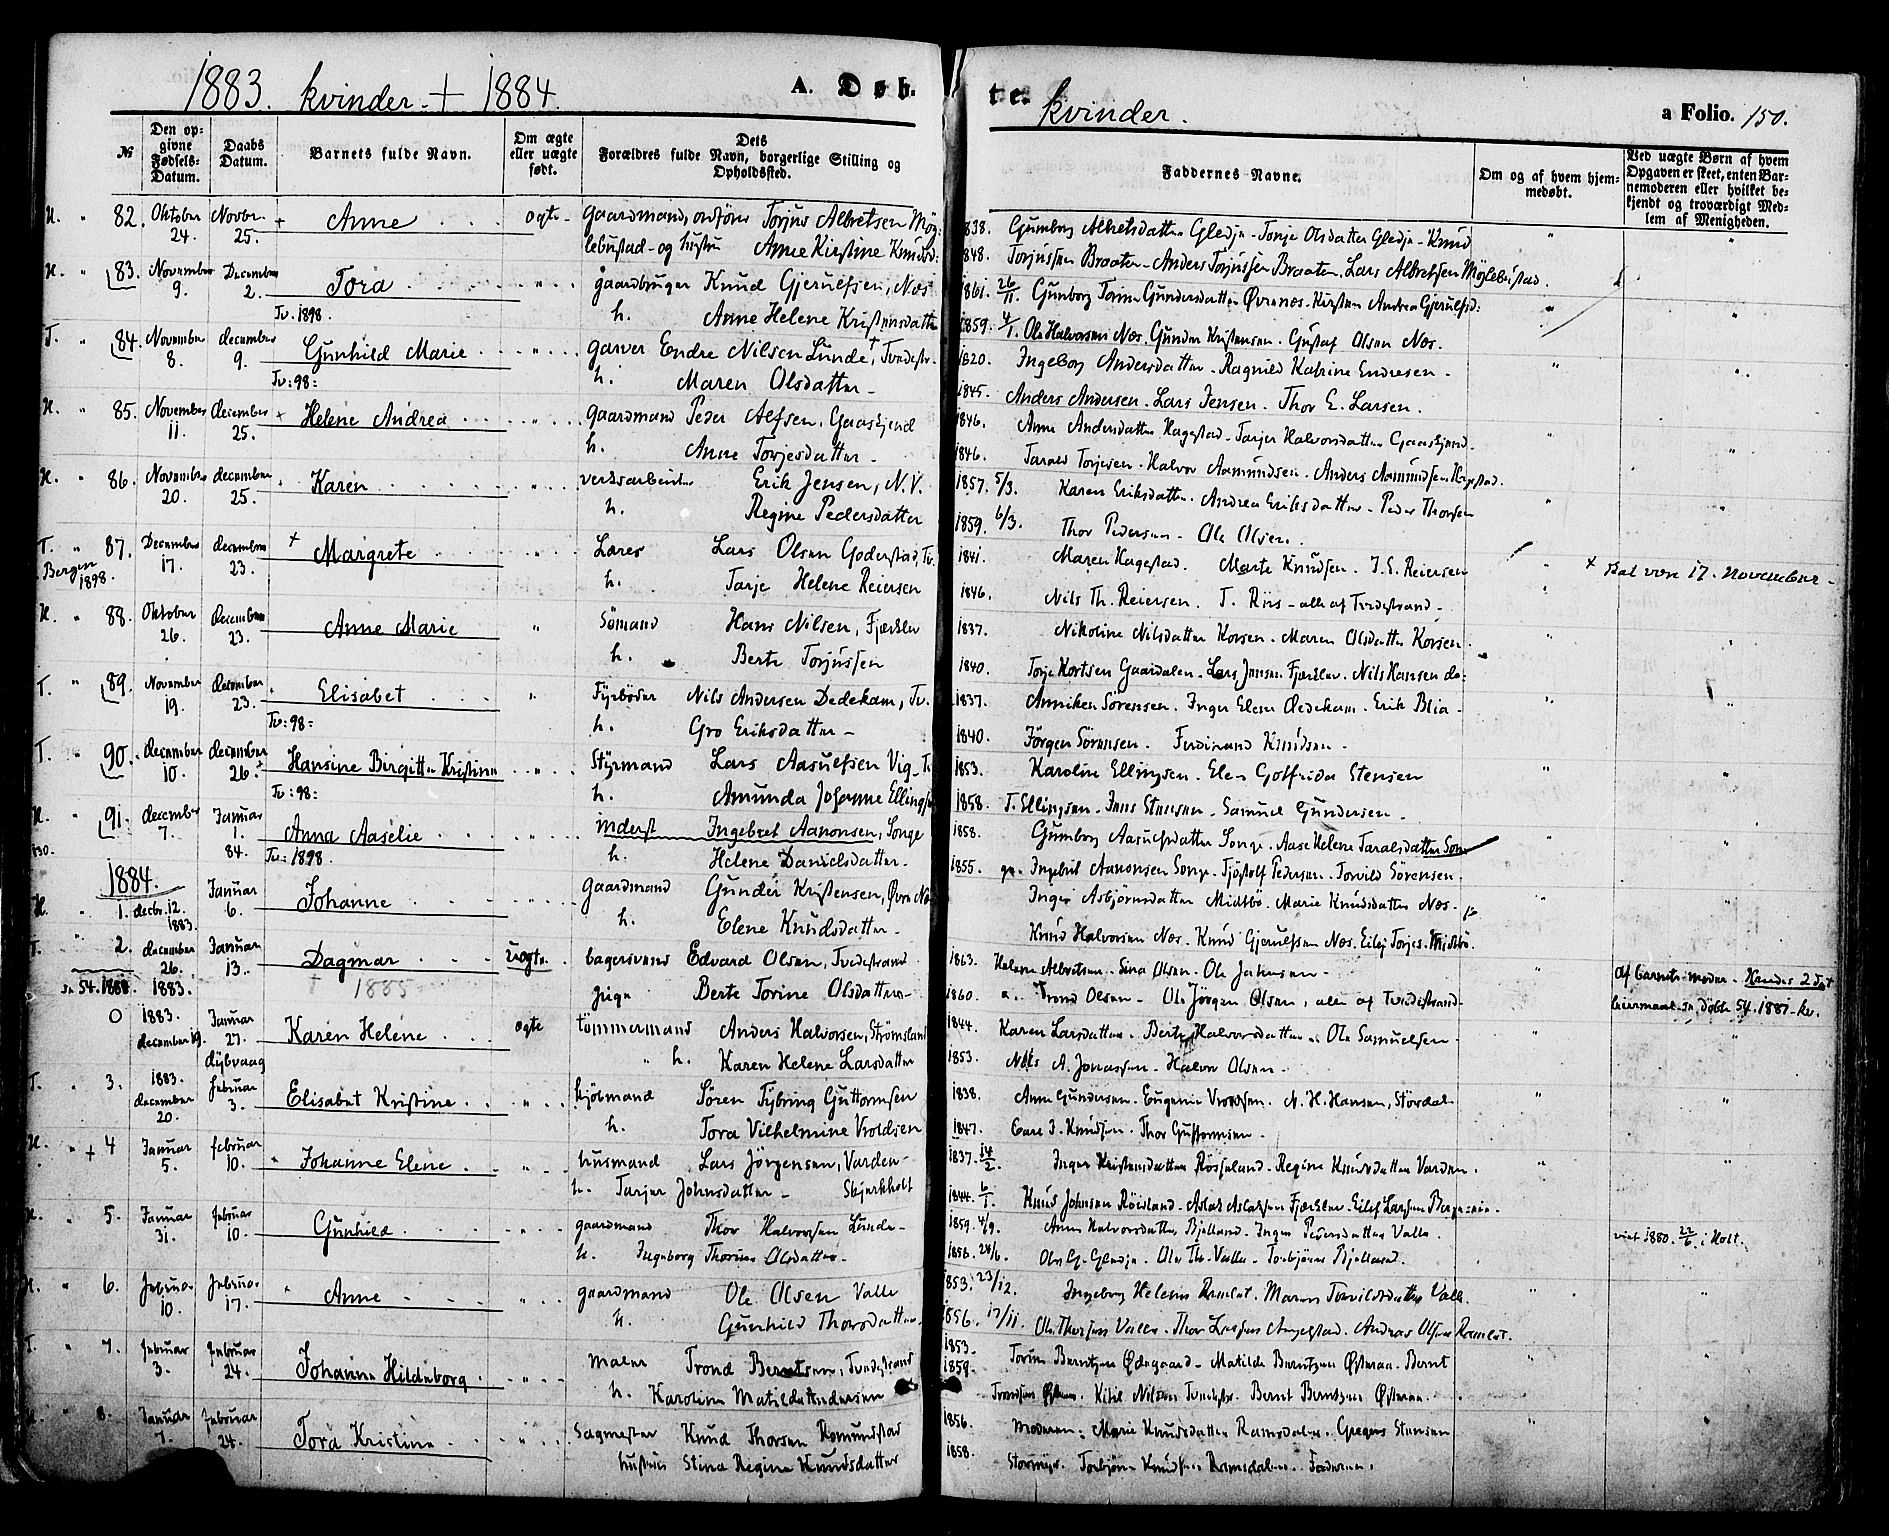 1883. kvinder. + 1884. A. Døb. te. kvinder. a Folio. 150.
№ Den opgivne Fødsels-Datum. Daabs Datum. Barnets fulde Navn. Om ægte eller uægte født. Dets Forældres fulde Navn, borgerlige Stilling og Opholdsted. Faddernes Navne. Om og af hvem hjemmedøbt. Ved uægte Børn af hvem Opgaven er skeet, enten Barnemoderen eller hvilket bekjendt og troværdigt Medlem af Menigheden.
H. " 82. Oktober 24. Novbr. 25. + Anne ægte gaardmand, ordförer Torjus Albretsen Møg- 1838. Gunborg Albretsdatter Gledje - Tonje Olsdatter Gledje - Knud
lebustad - og hustru Anne Kirstine Knudsd: 1848. Torjussen Braaten - Anders Torjussen Braaten. Lars Albretsen Møglebustad.
H. " 83. November 9. December 2. Tora gaardbruger Knud Gjerulfsen, Næs 1861. 26/11. Gunborg Torine Gundersdatter Øvrenæs. Kirsten Andrea Gjerulfsd:
Tv. 1898. h. Anne Helene Kristensdatter 1859. 4/1. Ole Halvorsen Næs. Gunder Kristensen. Gustaf Olsen Næs.
T. " 84. November 8. december 9. Gunhild Marie garver Endre Nilsen Lunde, Tvedestr. 1820. Ingeborg Andersdatter. Ragnild Katrine Endresen -
Tv: 98: h. Maren Olsdatter - 1845. Anders Andersen. Lars Jensen. Thor E. Larsen.
H. " 85. November 11. december 25. + Helene Andrea gaardmand Peder Alfsen, Gaaskjend 1846. Anne Andersdatter Hagestad. Tarjer Halvorsdatter Gaaskjend.
h. Anne Torjesdatter - 1846. Tarald Torjesen. Halvor Aamundsen. Anders Aamundsen Hagestad.
H. " 86. November 20. december 25. Karen verksarbeider Erik Jensen, N.V. 1857. 5/3. Karen Eriksdatter. Andrea Eriksdatter - Peder Thorsen
h. Regine Pedersdatter 1859. 6/3. Thor Pedersen - Ole Olsen.
T. " 87. December 17. december 23. + Margrete Lærer Lars Olsen Goderstad, Tv. 1841. Maren Hagestad. Marte Knudsen. J. E. Reiersen + skal være 17. November -
Bergen 1898. h. Tarje Helene Reiersen 1846. Nils Th. Reiersen. T. Riis - alle af Tvedestrand -
H. " 88. Oktober 26. December 23. Anne Marie " Sömand Hans Nilsen, Fjærkleiv 1837. Nikoline Nilsdatter Korsen. Maren Olsdatter Korsen.
h. Berte Torjussen 1840. Torje Kortsen Gaardalen. Lars Jensen Fjærkleiv. Nils Hansen do:
T. " 89. November 19. December 23. Elisabet " Fyrböder Nils Andersen Dedekam, Tv. 1837. Anniken Sörensen. Inger Elene Dedekam. Erik Blia -
Tv: 98: h. Gro Eriksdatter - 1840. Jörgen Sörensen. Ferdinand Knudsen -
T. " 90. december 10. december 26. Hansine Birgitte Kristine Styrmand Lars Aasulfsen Vig, Tv. 1853. Karoline Ellingsen. Elen Gotfrida Stensen
Tv: 98: h. Amunda Johanne Ellingsen 1858. T. Ellingsen. Jens Stensen. Samuel Gundersen.
H. " 91. december 7. Januar 1. 84. Anna Aaselie inderst Ingebret Aanonsen, Songe 1858. Gunborg Aasulfsdatter Songe. Aase Helene Taralsdatter Songe
Tv: 1898. h. Helene Danielsdatter. 1855. Ingebret Aanonsen Songe. Tjöstolf Pedersen. Torvild Sörensen.
1884.
H. " 1. decbr. 12. 1883. Januar 6. Johanne gaardmand Gunder Kristensen, Øvre Næs Inger Asbjörnsdatter Midtbö. Marie Knudsdatter Næs.
h. Elene Knudsdatter. Knud Halvorsen Næs. Knud Gjerulfsen Næs. Eilif Torjes. Midtbö.
T. " 2. december 26. 1883. Januar 13. Dagmar uægte bagersvend Edvard Olsen, Tvedestrand 1863. Helene Albretsen. Sina Olsen. Ole Johnsen - Af Barnets moder - Hendes 2det
sn 54. 1885 pige Berte Torine Olsdatter 1860. Trond Olsen - Ole Jörgen Olsen, alle af Tvedestrand leiermaal. sn. döbte 54. 1881 - kv.
0 1883. december 19. Januar 27. dybvaag Karen Helene ægte tömmermand Anders Halvorsen, Strömsland 1844. Karen Larsdatter. Berte Halvorsdatter. Ole Samuelsen
" h. Karen Helene Larsdatter 1853. Nils A. Jonassen. Halvor Olsen -
T. " 3. 1883. december 20. februar 3. Elisabet Kristine kjöbmand Sören Tybring Guttormsen 1838. Anne Gundersen. Eugenie Vroldsen. N. H. Hansen, Stövdal
h. Tora Vilhelmine Vroldsen 1847. J. Knudsen. Thor Guttormsen -
H. " + 4 Januar 5. februar 10. Johanne Elene husmand Lars Jörgensen, Varden- 1837. 14/2. Inger Kristensdatter Røseland. Regine Knudsdatter Varden.
h. Tarjer Johnsdatter - Skjerkholt 1844. 6/1. Knud Johnsen Röisland. Aslak Aslaksen Fjærkleiv. Eilef Larsen
H. " 5. Januar 31. februar 10. Gunhild gaardmand Thor Halvorsen Lunde - 1859. 4/9. Anne Halvorsdatter Bjelland. Inger Pedersdatter Valle. viet 1880. 22/6. i Holt.
h. Ingeborg Thorine Olsdatter - 1856. 24/6. Ole G. Gledje. Ole Th. Valle. Torbjörn Bjelland.
H. " 6. februar 10. februar 17. Anne gaardmand Ole Olsen Valle 1853. 23/12. Ingeborg Helene Ramlet. Maren Torvildsdatter Valle.
h. Gunhild Thorsdatter 1856. 17/11. Ole Thorsen Valle. Thor Larsen Angelstad. Andreas Olsen Ramlet.
T. " 7. februar 3. februar 24. Johanne Hildeborg maler Trond Berntsen, Tvedestrand 1853. Torine Berntsen Ødegaard - Matilde Berntsen Østeraa. Bernt
h. Karoline Matilde Andersen 1859. Trondsen. Kitil Nilsen Tvedestr. Bernt Berntsen Østeraa.
H. " 8. Januar 7. februar 24. Tora Kristine Sagmester Knud Thorsen Romundstad 1856. moderen: Marie Knudsdatter Ramsdalen. Gregers Stensen
hustru Stina Regine Knudsdatter 1858. Torbjörn Knudsen Ramsdalen. Faderen.